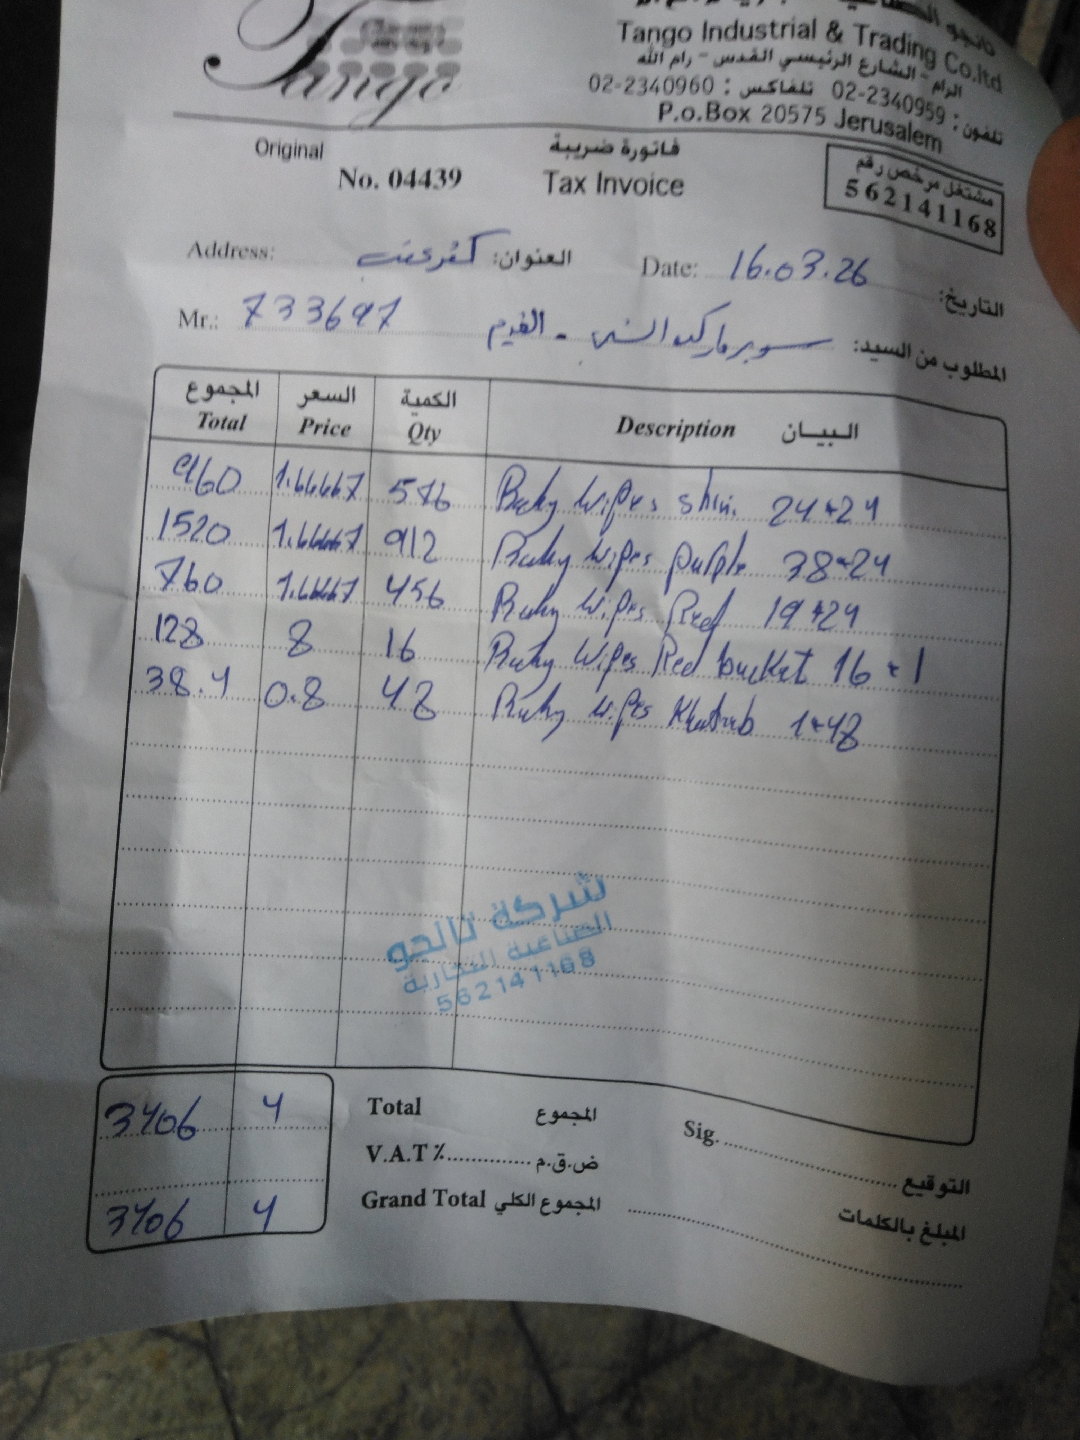 Tango
Tango Industrial & Trading Co.ltd
الرام - الشارع الرئيسي القدس - رام الله
تلفون : 02-2340959 تلفاكس : 02-2340960
P.o.Box 20575 Jerusalem
Original
No. 04439
فاتورة ضريبة
Tax Invoice
مشتغل مرخص رقم
562141168
Address: العنوان: كفر عقب
Date: 16.03.26 التاريخ:
Mr.: 733697
المطلوب من السيد: سوبرماركت
المجموع السعر الكمية البيــان
Total Price Qty Description
960 1.66667 576 Baby Wipes 24*24
1520 1.66667 912 Baby Wipes purple 38*24
760 1.6667 456 Baby Wipes Red 19*24
128 8 16 Baby Wipes Red bucket 16*1
38.4 0.8 48 Baby Wipes 1*48
شركة تانجو
الصناعية التجارية
562141168
3406 4 Total المجموع
Sig. التوقيع
V.A.T٪ ض.ق.م
3406 4 Grand Total المجموع الكلي
المبلغ بالكلمات